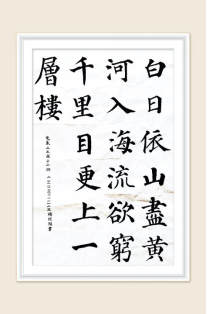 白日依山盡黃
河入海流欲窮
千里目更上一
層樓